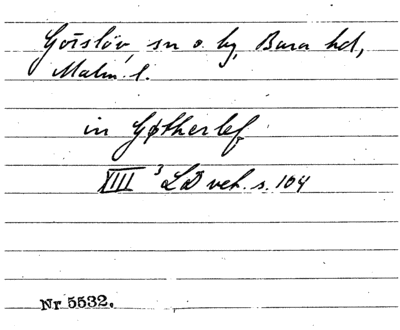 Görslöv, sn o. by, Bara hd,
Malm. l.
in Gøtherlef
XIII ³ LD vet. s. 104
Nr 5532.